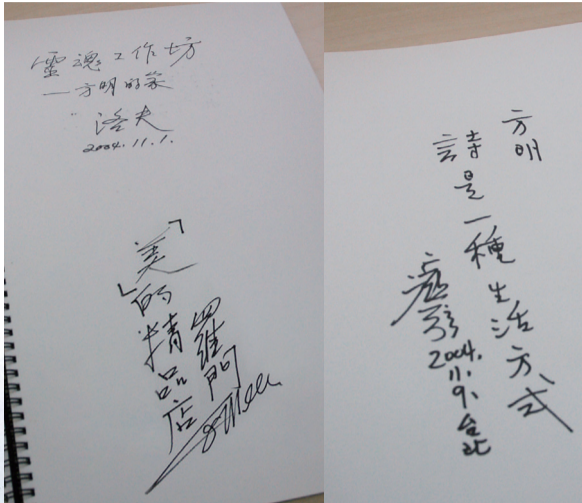 靈魂工作坊
—方明的家
洛夫
2004.11.1.
「美」的精品店
羅門
方明
詩是一種生活方式
瘂弦
2004.
11.9.
台北